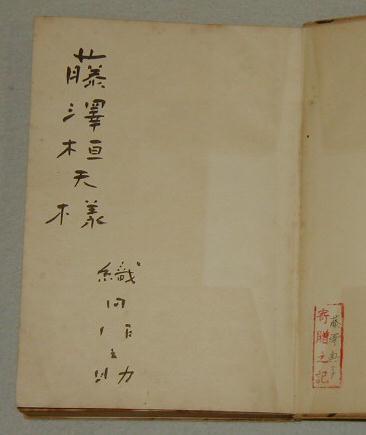 藤澤桓夫様
織田作之助
藤澤典子
寄贈之記